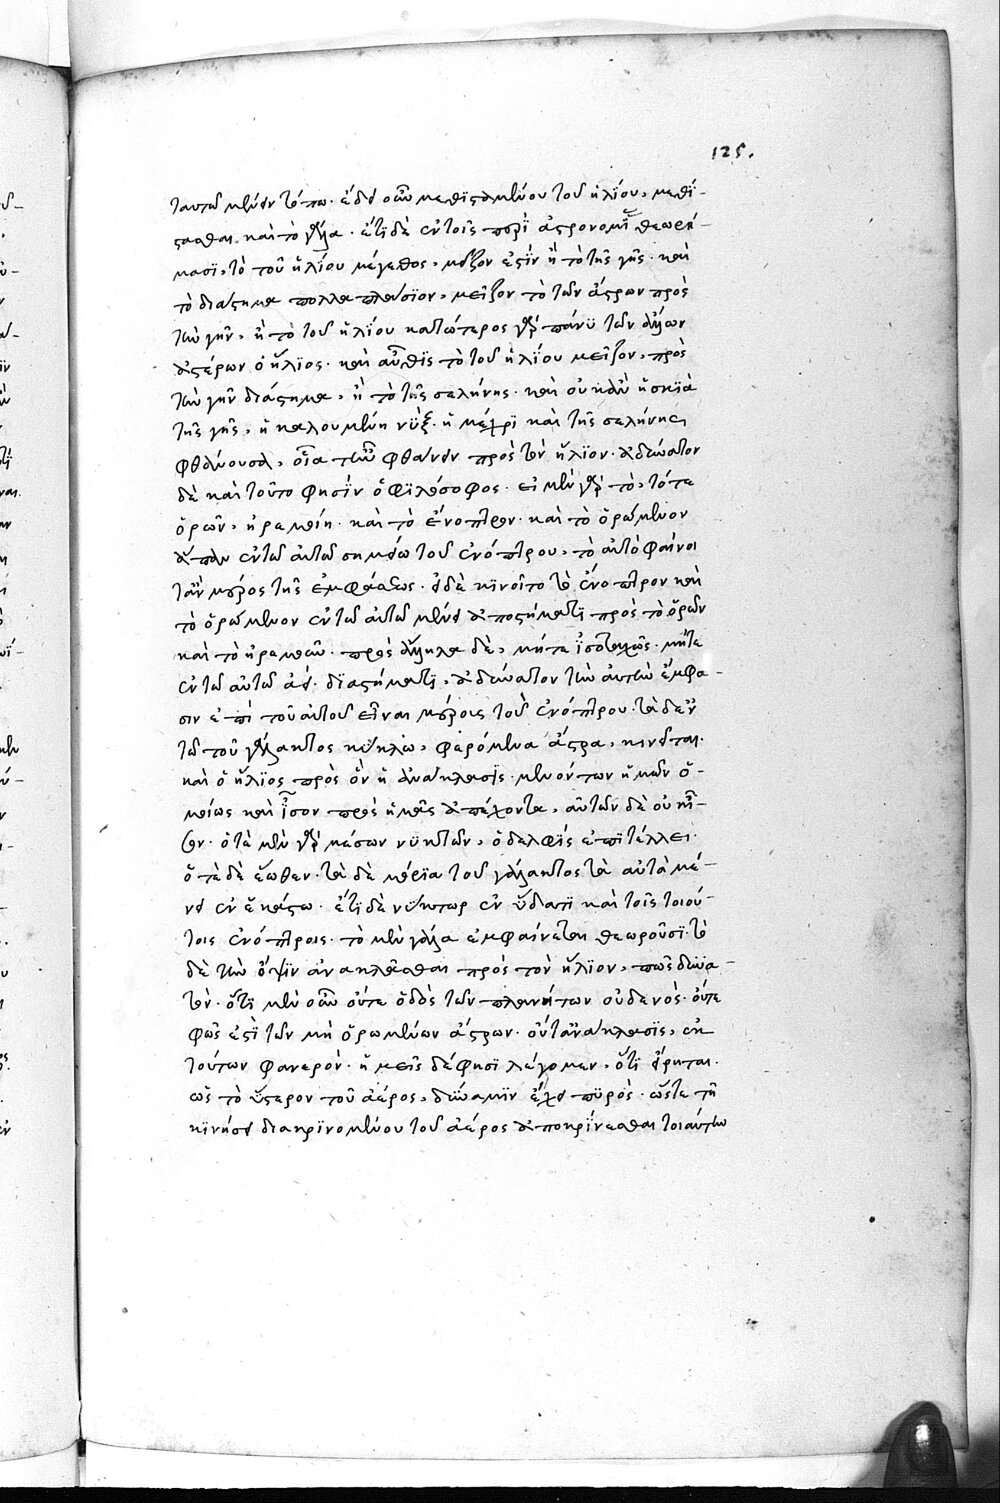 125.
ταυτῶ μένειν τόπω. ἔδει οὖν μεθισταμένου τοῦ ἡλίου, μεθί-
στασθαι καὶ τὸ γάλα. ἔτι δὲ ἐν τοῖς περὶ ἀστρονομίαν θεωρή-
μασι, τὸ τοῦ ἡλίου μέγεθος, μεῖζον ἐστὶν ἢ τὸ τῆς γῆς. καὶ
τὸ διάστημα πολλαπλάσιον, μεῖζον τὸ τῶν ἄστρων πρὸς
τὴν γῆν, ἢ τὸ τοῦ ἡλίου κατώτερος γὰρ πάνυ τῶν ἄλλων
ἀστέρων ὁ ἥλιος. καὶ αὖθις τὸ τοῦ ἡλίου μεῖζον, πρὸς
τὴν γῆν διάστημα, ἢ τὸ τῆς σελήνης. καὶ οὐκ ἂν ἡ σκιὰ
τῆς γῆς, ἡ καλουμένη νὺξ. ἡ μέχρι καὶ τῆς σελήνης
φθάνουσα, οἵα τ' ἦν φθάνειν πρὸς τὸν ἥλιον. ἀδύνατον
δὲ καὶ τοῦτο φησὶν ὁ φιλόσοφος. εἰ μὲν γὰρ τὸ, τότε
ὁρῶν, ἠρεμοίη. καὶ τὸ ἔνοπτρον. καὶ τὸ ὁρώμενον
ἅπαν ἐν τῶ αὐτῶ σημείω τοῦ ἐνόπτρου, τὸ αὐτὸ φαίνοι
τ' ἂν μέρος τῆς ἐμφάσεως. εἰ δὲ κινοῖτο τὸ ἔνοπτρον καὶ
τὸ ὁρώμενον ἐν τῶ αὐτῶ μένει ἀποστήματι πρὸς τὸ ὁρῶν
καὶ τὸ ἠρεμοῦν. πρὸς ἄλληλα δὲ, μήτε ἰσοταχῶς. μήτε
ἐν τῶ αὐτῶ ἀεὶ διαστήματι, ἀδύνατον τὴν αὐτὴν ἔμφα-
σιν ἐπὶ τοῦ αὐτοῦ εἶναι μέροις τοῦ ἐνόπτρου. τὰ δ' ἐν
τῶ τοῦ γάλακτος κύκλω, φερόμενα ἄστρα, κινεῖται.
καὶ ὁ ἥλιος πρὸς ὃν ἡ ἀνάκλασις. μενόντων ἡμῶν ὁ-
μοίως καὶ ἴσον πρὸς ἡμᾶς ἀπέχοντα, αὐτῶν δὲ οὐκ ἴ-
σον. ὁτὲ μὲν γὰρ μέσων νυκτῶν, ὁ δελφὶς ἐπιτέλλει.
ὁτὲ δὲ ἕωθεν. τὰ δὲ μόρια τοῦ γάλακτος τὰ αὐτὰ μέ-
νει ἐν ἑκάστω. ἔτι δὲ νύκτωρ ἐν ὕδατι καὶ τοῖς τοιού-
τοις ἐνόπτροις. τὸ μὲν γάλα ἐμφαίνεται θεωροῦσι. τὸ
δὲ τὴν ὄψιν ἀνακλᾶσθαι πρὸς τὸν ἥλιον, πῶς δυνα-
τὸν. ὅτι μὲν οὖν οὔτε ὁδὸς τῶν πλανήτων οὐδενὸς. οὔτε
φῶς ἐστὶ τῶν μὴ ὁρωμένων ἄστρων. οὔτ' ἀνάκλασις, ἐκ
τούτων φανερὸν. ἡμεῖς δέ φησι λέγομεν, ὅτι εἴρηται.
ὡς τὸ ὕστερον τοῦ ἀέρος, δύναμιν ἔχει πυρὸς. ὥστε τῆ
κινήσει διακρινομένου τοῦ ἀέρος ἀποκρίνεσθαι τοιαύτην